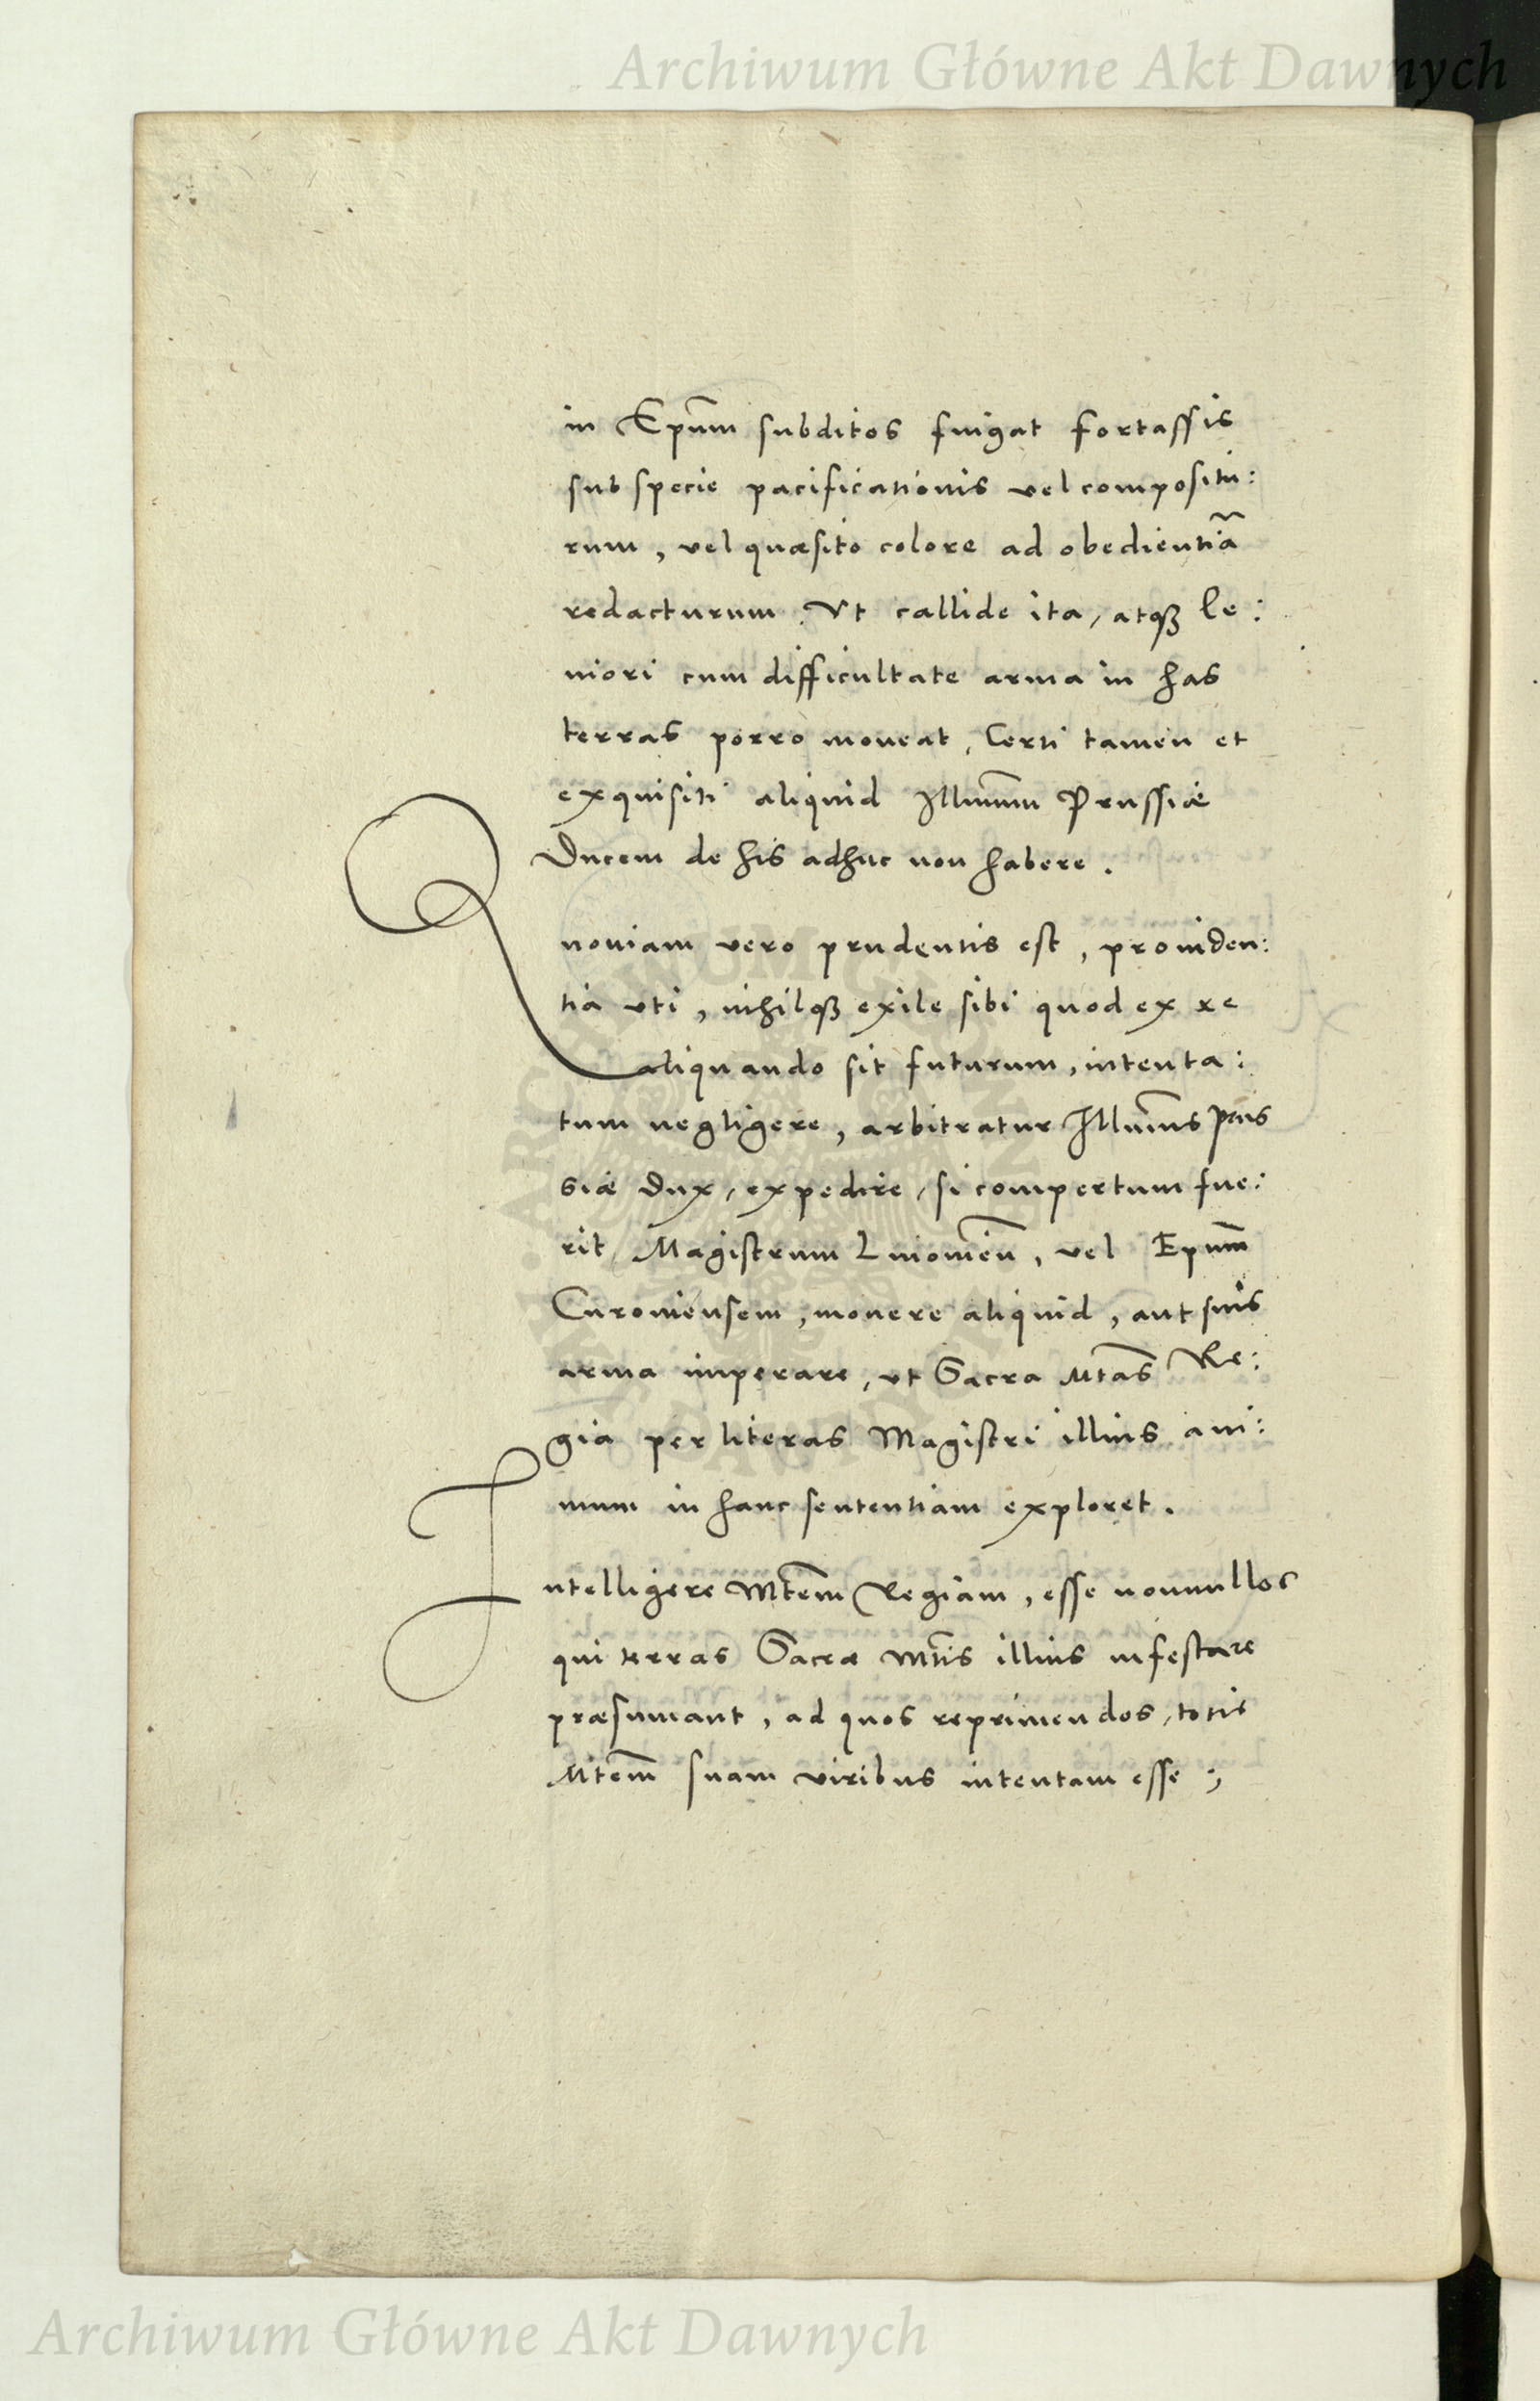 Archiwum Główne Akt Dawnych
in Epūm subditos fingat fortassis
sub specie pacificationis vel compositu:
rum, vel quæsito colore ad obedientiā
redacturum. Vt callide ita, atqȝ le:
niori cum difficultate arma in has
terras porro moveat, Certi tamen et
exquisiti aliquid Illmūm Prussiæ
Ducem de his adhuc non habere.
Quoniam vero prudentis est, providen:
tia vti, nihilqȝ exile sibi quod ex re
aliquando sit futurum, intenta:
tum negligere, arbitratur Illmūs Prus
siæ Dux, expedire, si compertum fue:
rit, Magistrum Liuonieñ, vel Epūm
Curoniensem, mouere aliquid, aut suis
arma imperare, vt Sacra Mtās Re:
gia per literas Magistri illius ani:
mum in hanc sententiam exploret.
Intelligere Mtēm Regiam, esse nonnullos
qui terras Sacræ Mtīs illius infestare
præsumant, ad quos reprimendos, totis
Mtēm suam viribus intentam esse;
Archiwum Główne Akt Dawnych